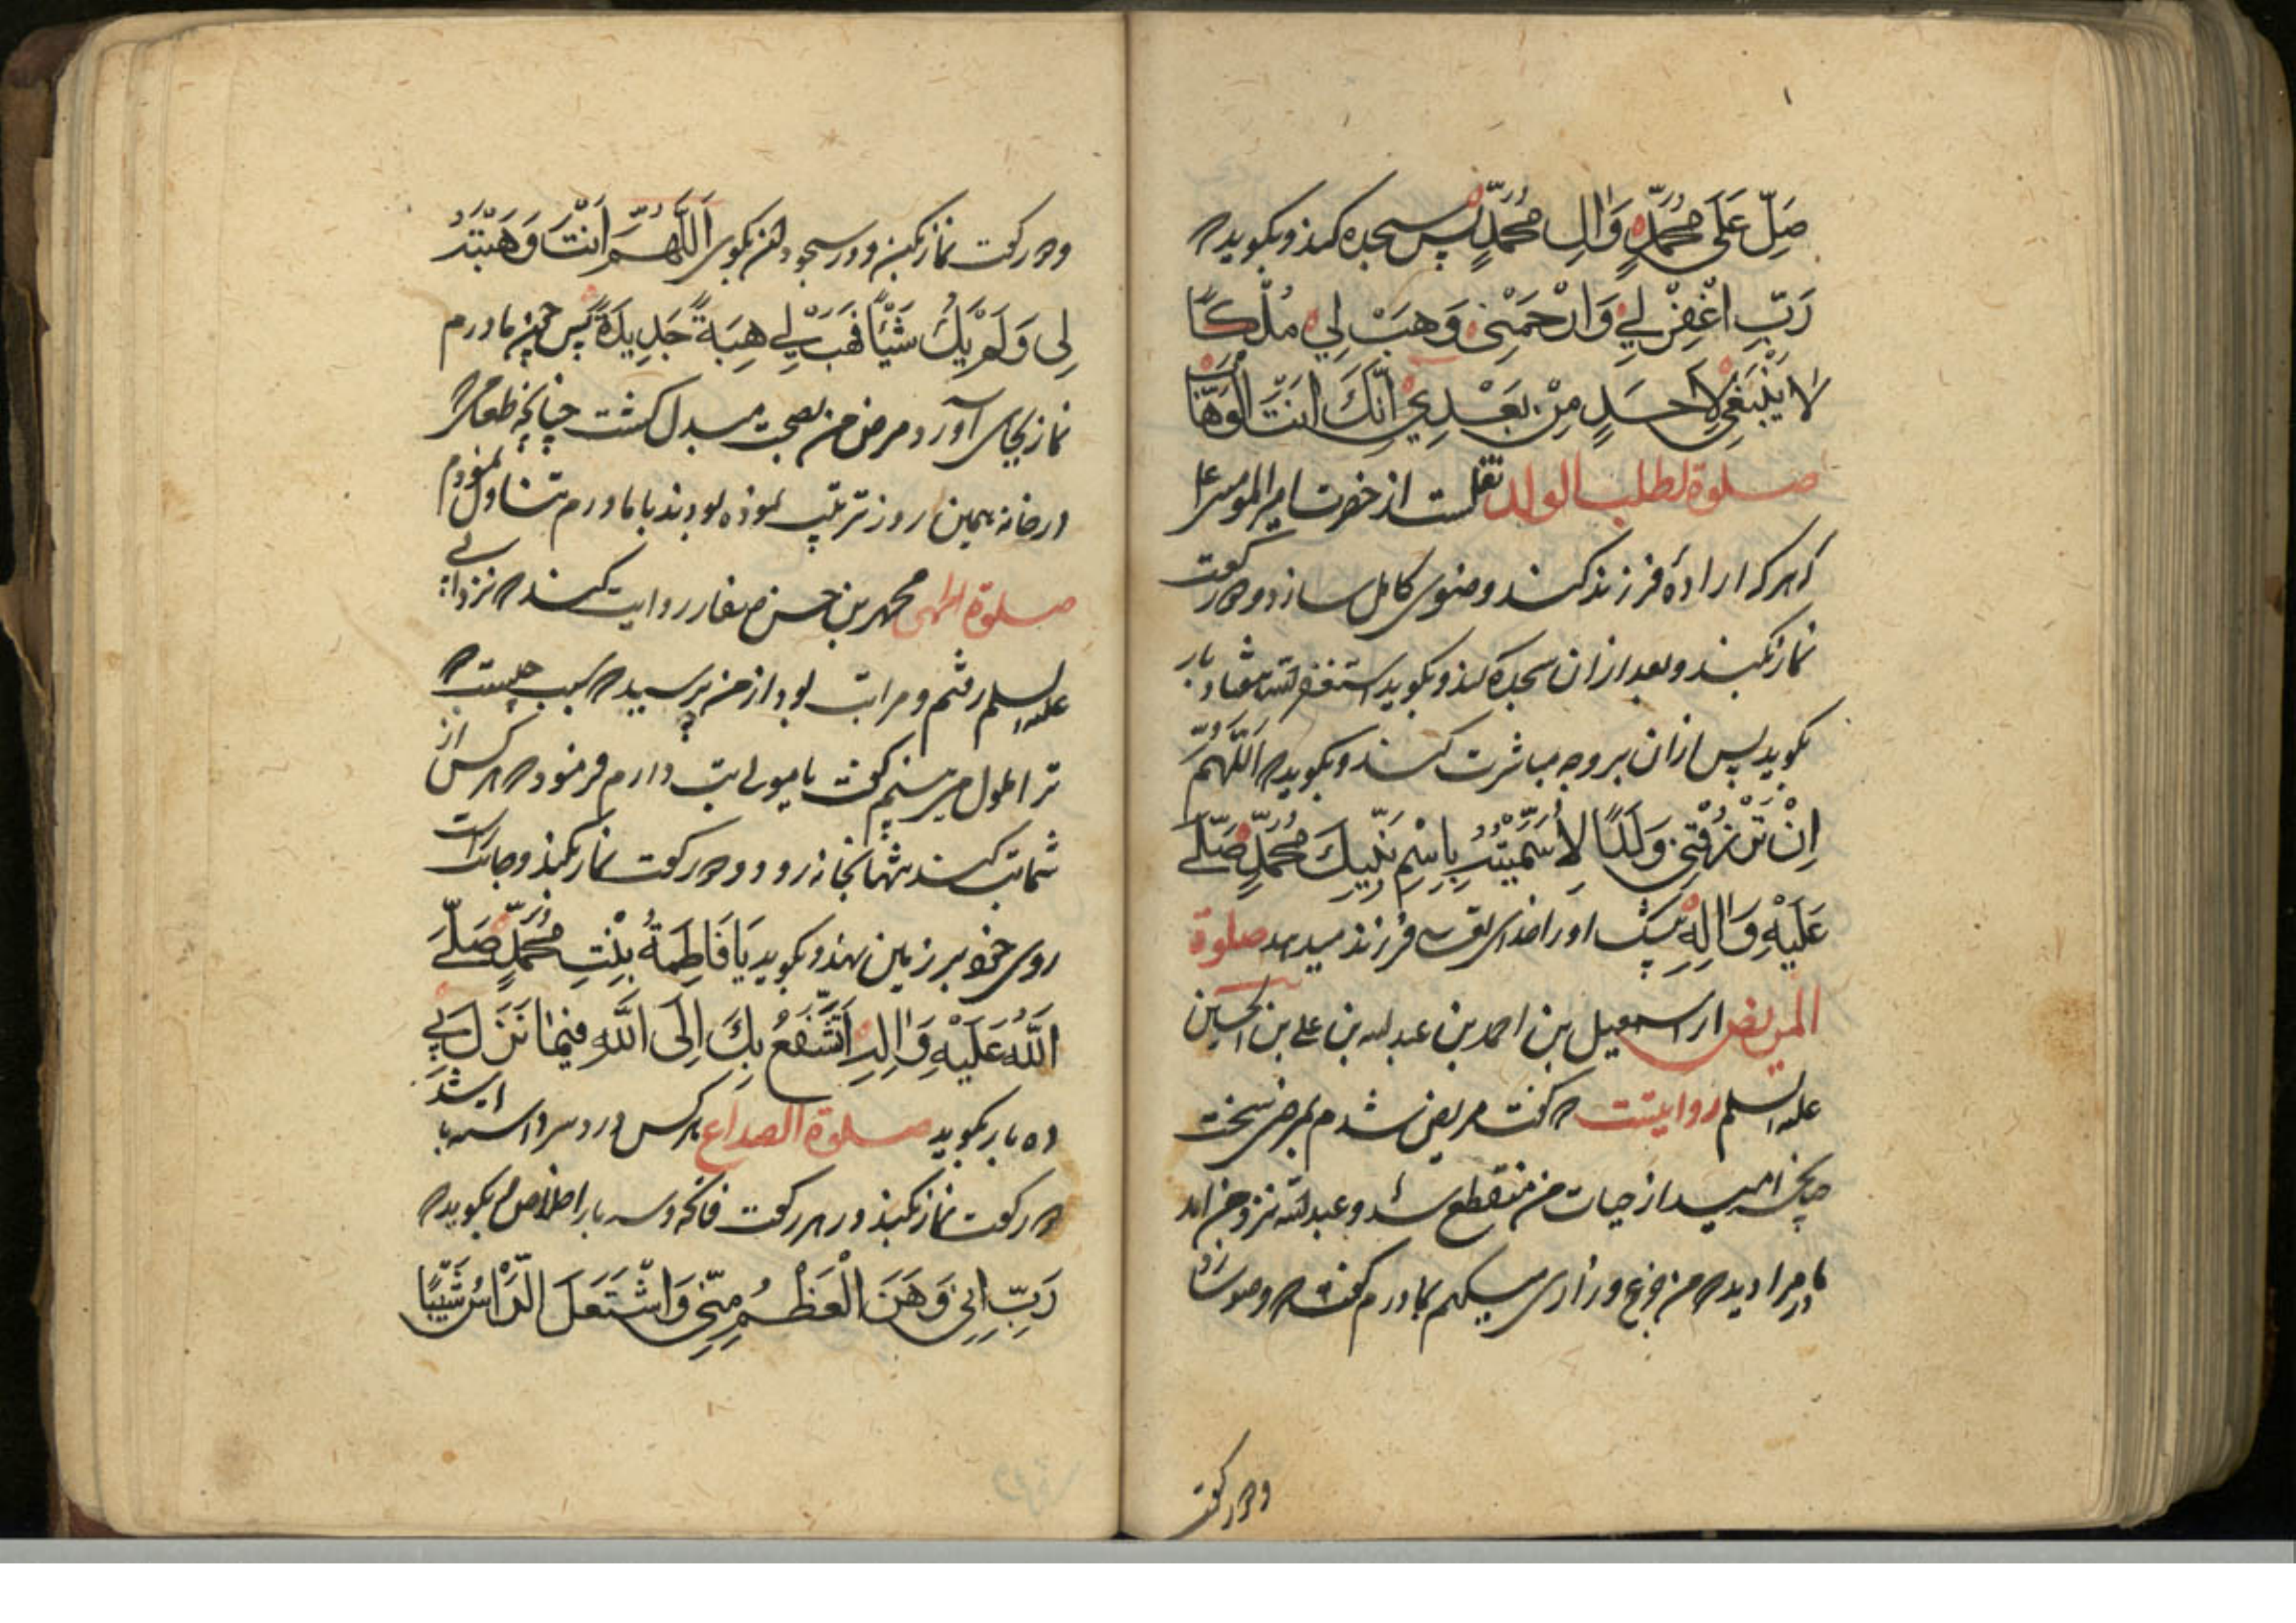 صَلِّ عَلَی مُحَمَّدٍ وَاٰلِ مُحَمَّدٍ پس سجده کند و بکوید که
رَبِّ اغْفِرْ لِي وَارْحَمْنِي وَهَبْ لِي مُلْكًا
لَا یَنْبَغِي لِاَحَدٍ مِنْ بَعْدِي اِنَّكَ اَنْتَ الْوَهَّابُ
صلوة لطلب الولد نقلست از حضرت امیر المومنین علی
که هر که ارادهٔ فرزند کند وضوی کامل سازد و دو رکعت
نماز بکند و بعد از ان سجده کند و بکوید استغفر الله هفتاد بار
بکوید پس ازان بزوجه مباشرت کند و بکوید که اَللّٰهُمَّ
اِنْ تَرْزُقْنِي وَلَدًا لَاُسَمِّیَنَّهُ بِاسْمِ نَبِیِّكَ مُحَمَّدٍ صَلَّی
عَلَیْهِ وَاٰلِهِ بیشک او را خدای تعالی فرزند میدهد صلوة
المریض از اسمعیل بن احمد بن عبد الله بن علی بن الحسین
علیه السلم روایتست که کفت مریض شدم بمرض سخت
چنانچه امید از حیات من منقطع شد و عبد الله نزد من امد
مادرم را دید که من جزع و زاری میکنم بمادرم کفت که وضو ساز
دو رکعت
و دو رکعت نماز بکن و در سجود بکوی اَللّٰهُمَّ اَنْتَ وَهَبْتَهُ
لِي وَلَمْ یَكُ شَیْئًا فَهَبْ لِي هِبَةً جَدِیدَةً پس چون مادرم
نماز بجای آورد مرض من بصحت مبدل کشت چنانچه طعامی که
در خانه همین روز ترتیب نموده بودند با مادرم تناول نمودم
صلوة محمد بن حسن صفار روایت کند که نزد ابی
علیه السلم رفتم و مرا تب بود از من پرسید که سبب چیست که
ترا ملول می بینم کفتم یا مولای تب دارم فرمود که هر کس از
شما تب کند تنها بخانه رود و دو رکعت نماز بکند و جانب راست
روی خود بر زمین نهد و بکوید یَا فَاطِمَةُ بِنْتِ مُحَمَّدٍ صَلَّی
اللّٰهُ عَلَیْهِ وَاٰلِهِ اَتَشَفَّعُ بِكَ اِلَی اللّٰهِ فِیمَا نَزَلَ بِي
ده بار بکوید صلوة الصداع هر کس درد سر داشته باشد
دو رکعت نماز بکند در هر رکعت فاتحه و سه بار اخلاص بکوید که
رَبِّ اِنِّي وَهَنَ الْعَظْمُ مِنِّي وَاشْتَعَلَ الرَّاْسُ شَیْبًا